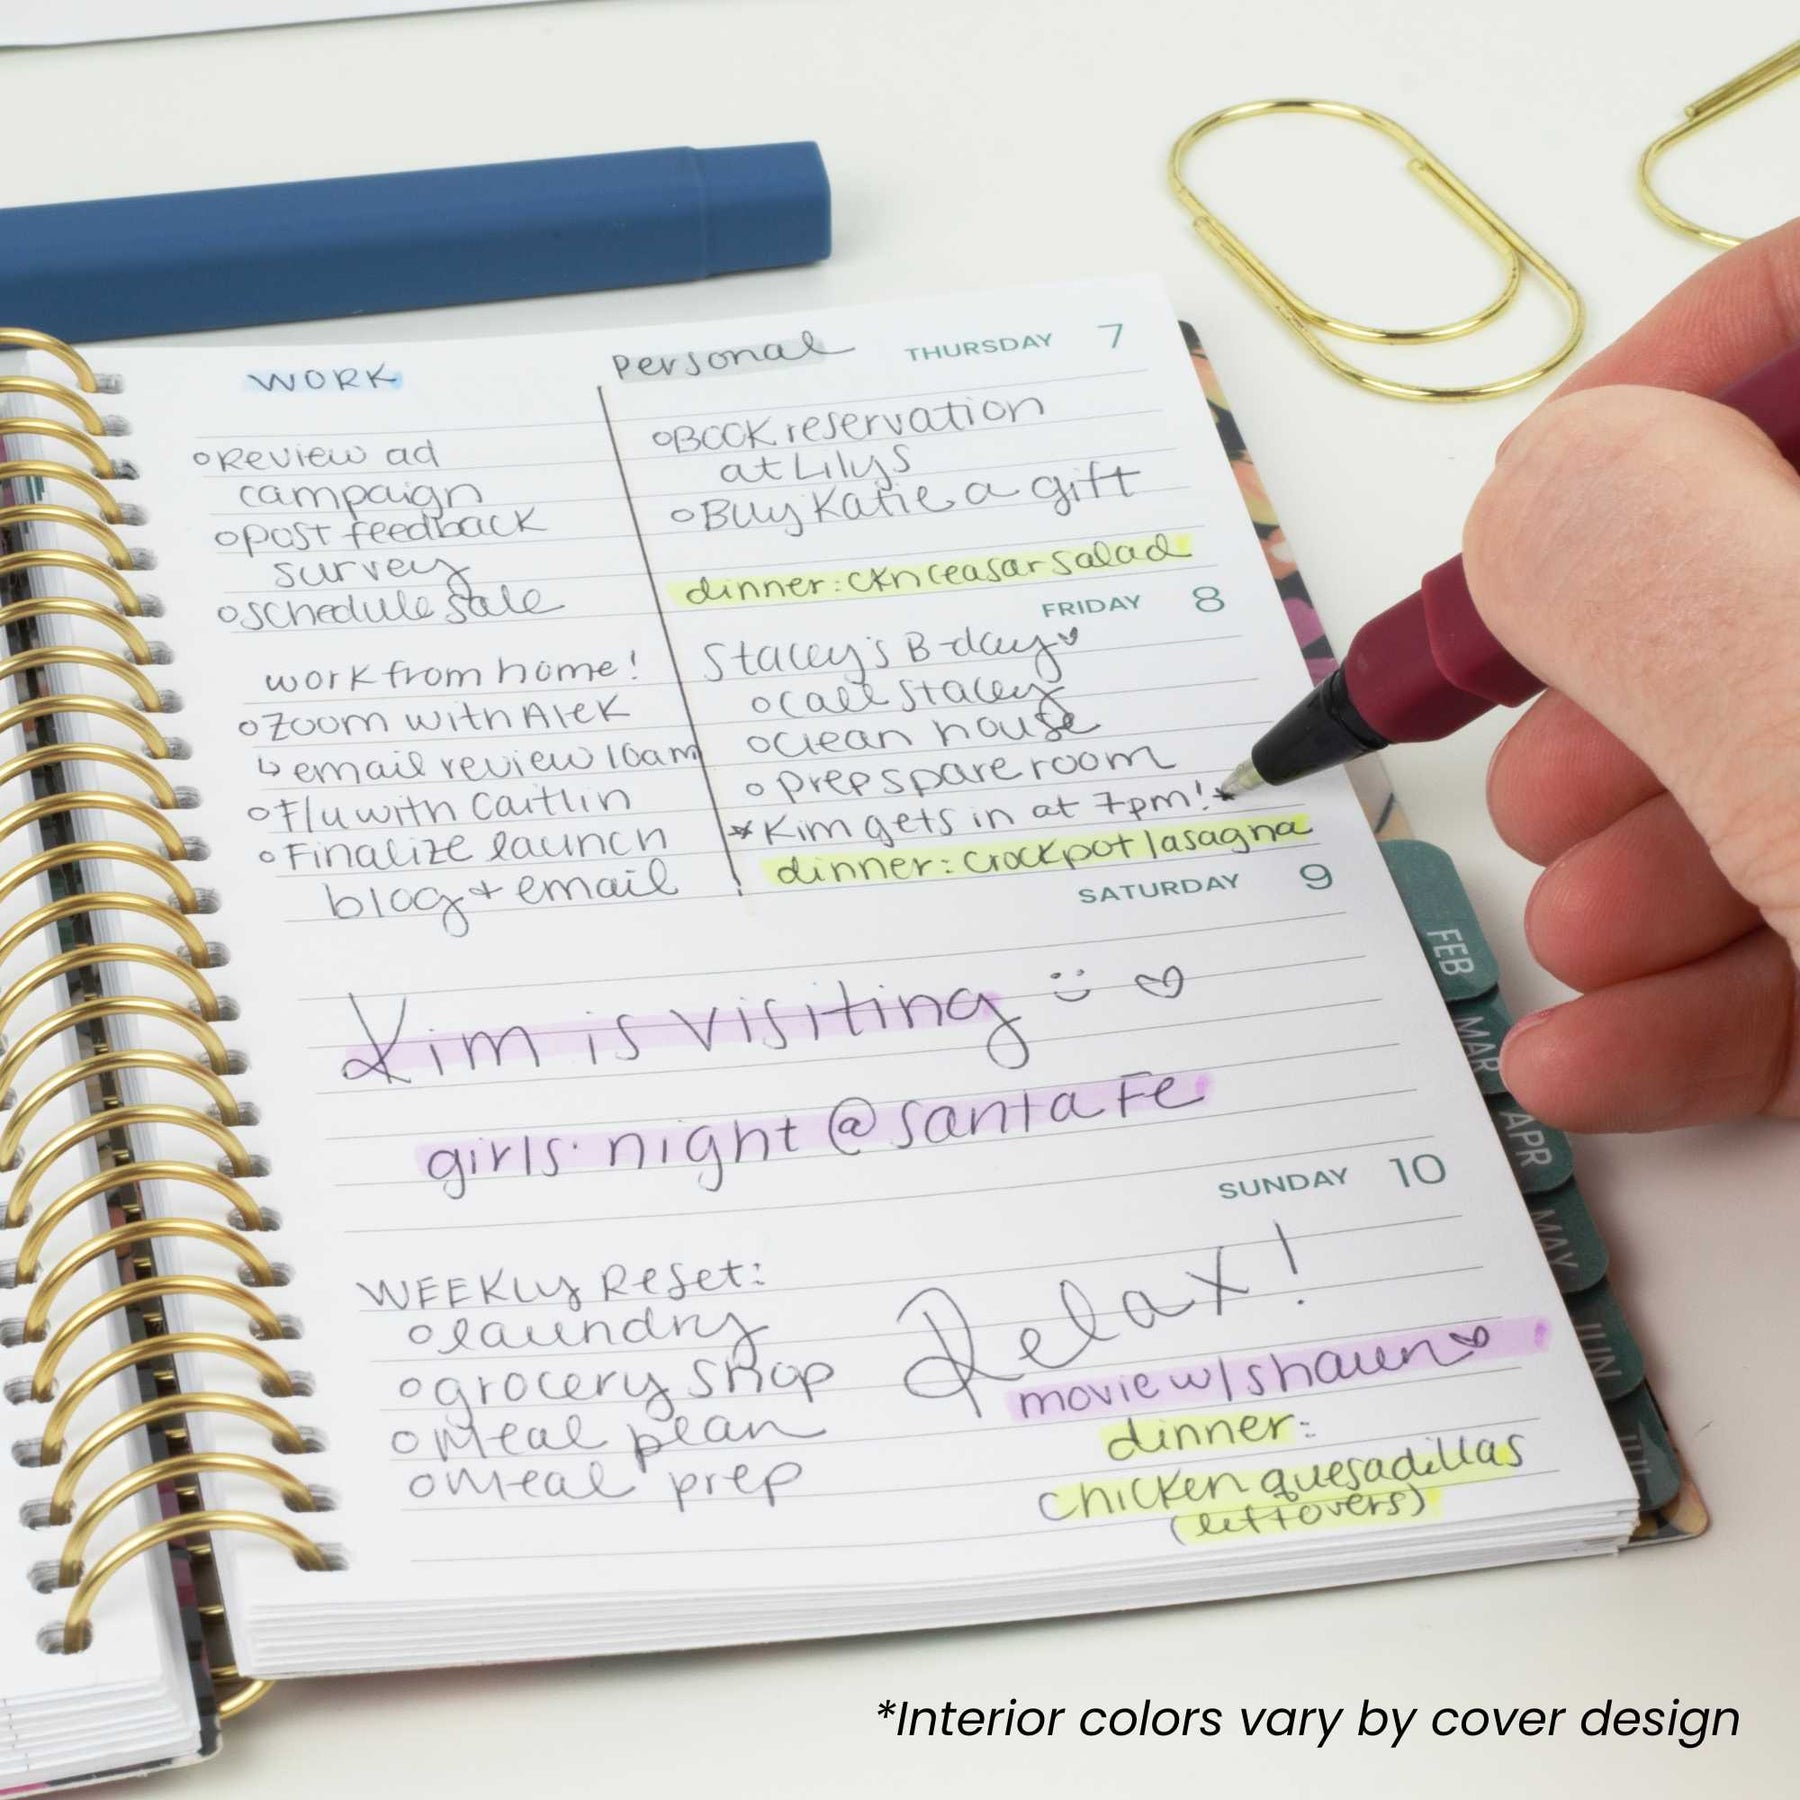 WORK
Personal
THURSDAY 7
Review ad
campaign
post feedback
survey
schedule sale
BOOK reservation
at Lilys
Buy Katie a gift
dinner: ckn ceasar salad
FRIDAY 8
work from home!
Zoom with Alek
↳ email review 10am
F/u with Caitlin
Finalize launch
blog + email
Stacey's B-day
call Stacey
clean house
prep spare room
*Kim gets in at 7pm!*
dinner: crockpot lasagna
SATURDAY 9
Kim is visiting
girls night @ Santa Fe
SUNDAY 10
WEEKLY Reset:
laundry
grocery shop
meal plan
meal prep
Relax!
movie w/ shaun
dinner:
chicken quesadillas
(leftovers)
FEB
MAR
APR
MAY
JUN
JUL
*Interior colors vary by cover design